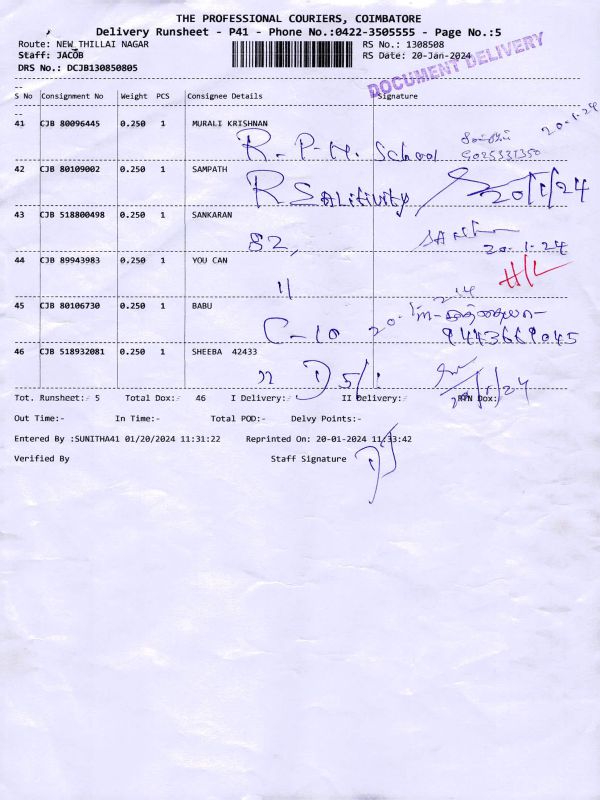 THE PROFESSIONAL COURIERS, COIMBATORE
Delivery Runsheet - P41 - Phone No.:0422-3505555 - Page No.:5
Route: NEW THILLAI NAGAR RS No.: 1308508
Staff: JACOB RS Date: 20-Jan-2024
DRS No.: DCJB130850805
DOCUMENT DELIVERY
S No Consignment No Weight PCS Consignee Details Signature
41 CJB 80096445 0.250 1 MURALI KRISHNAN 20-1-24
R-P-M. School
42 CJB 80109002 0.250 1 SAMPATH
R 20/1/24
43 CJB 518800498 0.250 1 SANKARAN
82, 20-1-24
44 CJB 89943983 0.250 1 YOU CAN H/L
11
45 CJB 80106730 0.250 1 BABU
C-10 9443669045
46 CJB 518932081 0.250 1 SHEEBA 42433
D 5/1
Tot. Runsheet:- 5 Total Dox:- 46 I Delivery:- II Delivery:- RTN Dox:-
Out Time:- In Time:- Total POD:- Delvy Points:-
Entered By :SUNITHA41 01/20/2024 11:31:22 Reprinted On: 20-01-2024 11:33:42
Verified By Staff Signature